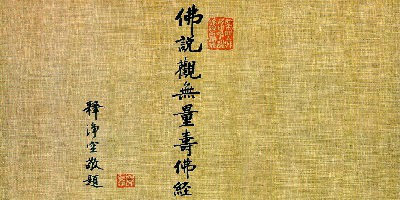 佛說觀無量壽佛經
釋淨空敬題